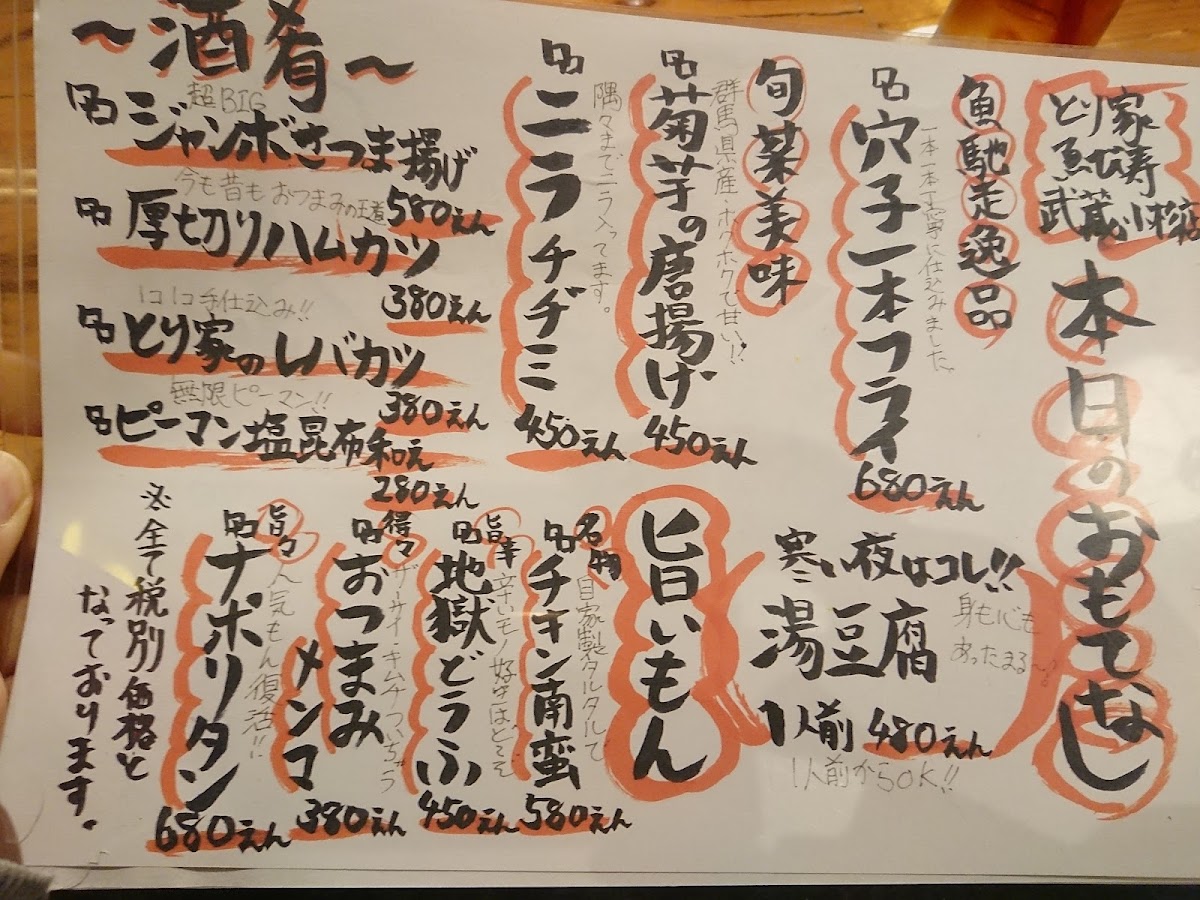 とり家
ゑび寿
武蔵小杉店
本日のおもてなし
魚馳走逸品
一本一本丁寧に仕込みました。
穴子一本フライ
680えん
旬菜美味
群馬県産・ホクホクで甘い!?
菊芋の唐揚げ
450えん
隅々までニラ入ってます。
ニラチヂミ
450えん
～酒肴～
超BIG
ジャンボさつま揚げ
580えん
今も昔もおつまみの王道
厚切りハムカツ
380えん
1コ1コ手仕込み!!
とり家のレバカツ
380えん
無限ピーマン!!
ピーマン塩昆布和え
280えん
寒い夜はコレ!!
湯豆腐
身も心も
あったまる～♪
1人前 480えん
1人前からOK!!
旨いもん
名物
自家製タルタルで
チキン南蛮
580えん
旨辛
辛いモノ好きはどうぞ
地獄どうふ
450えん
得々
ザーサイ・キムチついちゃう
おつまみ
メンマ
380えん
旨々
人気もん復活!!
ナポリタン
680えん
※全て税別価格と
なっております。